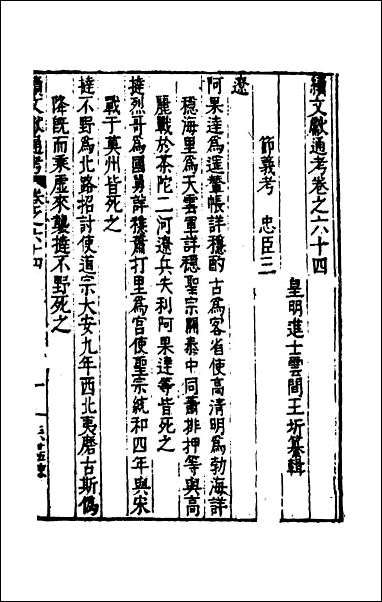 續文獻通考卷之六十四
皇明進士雲間王圻纂輯
節義考 忠臣二
遼
阿果達為遥輦帳詳穩酌古為客省使高清明為勃海詳
穩海里為天雲軍詳穩聖宗開泰中同蕭排押等與高
麗戰於茶陀二河遼兵失利阿果達等皆死之
撻烈哥為國舅詳穩蕭打里為宮使聖宗統和四年與宋
戰于莫州皆死之
撻不野為北路招討使道宗大安九年西北夷磨古斯偽
降既而乘虛來襲撻不野死之
續文獻通考 卷之六十四
一